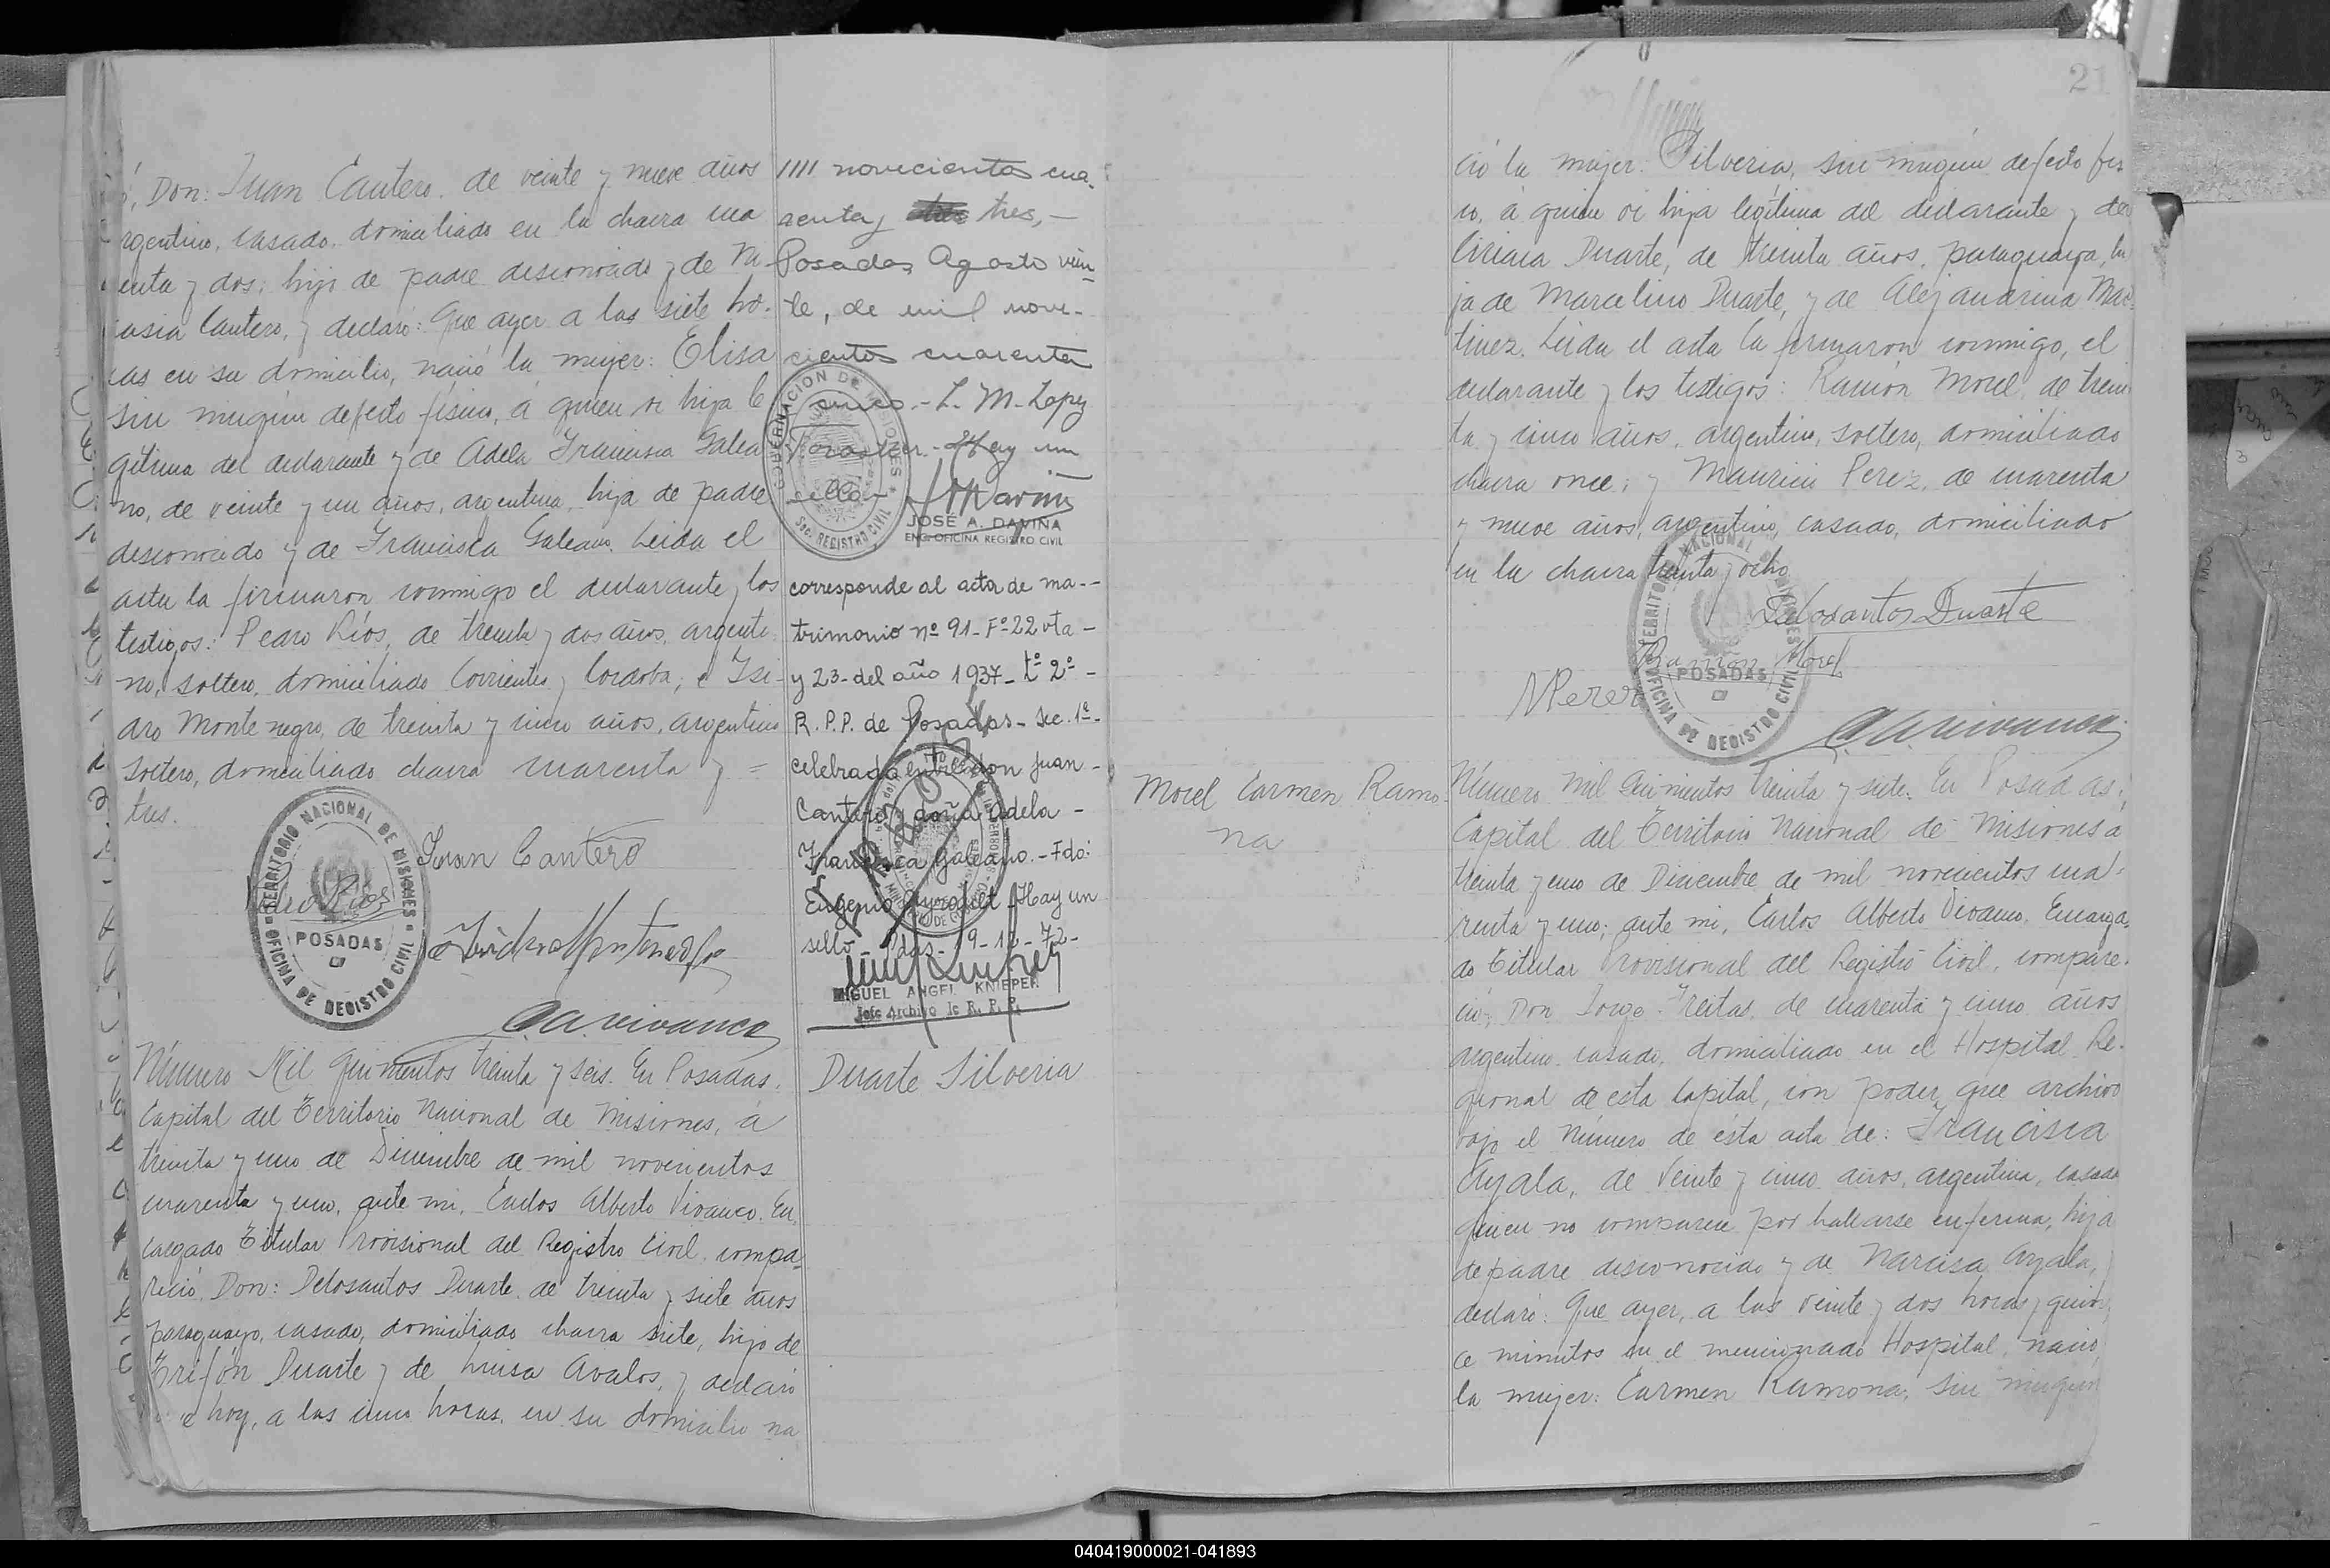 ó, Don: Juan Cantero, de veinte y nueve años
rgentino, casado, domiciliado en la chacra cua
enta y dos, hijo de padre desconocido y de Ni
casia Cantero, y declaró: Que ayer a las siete ho-
ras en su domicilio, nació la mujer: Elisa
sin ningún defecto físico, á quien vi hija le
gítima del declarante y de Adela Francisca Galea
no, de veinte y un años, argentina, hija de padre
desconocido y de Francisca Galeano. Leida el
acta la firmaron conmigo el declarante y los
testigos: Pedro Ríos, de treinta y dos años, argenti-
no, soltero, domiciliado Corrientes y Cordoba; e Isi-
dro Montenegro, de treinta y cinco años, argentino
soltero, domiciliado chacra cuarenta y =
tres.
TERRITORIO NACIONAL DE MISIONES
POSADAS
OFICINA DE REGISTRO CIVIL
Juan Cantero
Pedro Rios
Isidro Montenegro
C A Vivanco
Número Mil quinientos treinta y seis. En Posadas,
Capital del Territorio Nacional de Misiones, á
treinta y uno de Diciembre de mil novecientos
cuarenta y uno, ante mi, Carlos Alberto Vivanco, En
cargado Titular Provisional del Registro Civil, compa-
reció, Don: Delosantos Duarte, de treinta y siete años
paraguayo, casado, domiciliado chacra siete, hijo de
Trifón Duarte y de Luisa Avalos, y declaró
e hoy, a las cinco horas, en su domicilio na
1111 novecientos cua-
renta y tres,-
Posadas Agosto vein-
te, de mil nove-
cientos cuarenta
cinco.- L. M. Lopez
- Hay un
sello-
GOBERNACION DE MISIONES
Sec. REGISTRO CIVIL
JOSÉ A. DAVIÑA
ENC. OFICINA REGISTRO CIVIL
corresponde al acta de ma--
trimonio nº 91-Fº 22 vta-
y 23- del año 1937- tº 2º-
R.P.P. de Posadas- Sec. 1ª-
celebrada entre don Juan-
Cantero y doña Adela-
Francisca Galeano.- Fdo:
Eugenio - Hay un
sello- Pdas- 19-12-72-
MIGUEL ANGEL KNIEPER
Jefe Archivo R. P. P.
Duarte Silveria
21
ció la mujer: Silveria, sin ningún defecto físi
co, á quien vi hija legítima del declarante y de
Ciriaca Duarte, de treinta años, paraguaya, hi
ja de Marcelino Duarte, y de Alejandrina Mar-
tinez. Leida el acta la firmaron conmigo, el
declarante y los testigos: Ramón Morel, de trein
ta y cinco años, argentino, soltero, domiciliado
chacra once; y Mauricio Perez, de cuarenta
y nueve años, argentino, casado, domiciliado
en la chacra treinta y ocho
Delosantos Duarte
Ramón Morel
MPerez
C A Vivanco
TERRITORIO NACIONAL DE MISIONES
POSADAS
OFICINA DE REGISTRO CIVIL
Morel Carmen Ramo-
na
Número Mil Quinientos treinta y siete. En Posadas,
Capital del Territorio Nacional de Misiones a
treinta y uno de Diciembre de mil novecientos cua-
renta y uno; ante mi, Carlos Alberto Vivanco, Encarga-
do Titular Provisional del Registro Civil, compare-
ció, Don Jorge Freitas, de cuarenta y cinco años
argentino, casado, domiciliado en el Hospital Re-
gional de esta Capital, con poder que archivo
bajo el Número de ésta acta de: Francisca
Ayala, de Veinte y cinco años, argentina, casada
quien no comparece por hallarse enferma, hija
de padre desconocido y de Narcisa Ayala,
declaró: Que ayer, a las veinte y dos horas y quin
ce minutos en el mencionado Hospital, nació
la mujer: Carmen Ramona, sin ningún
040419000021-041893